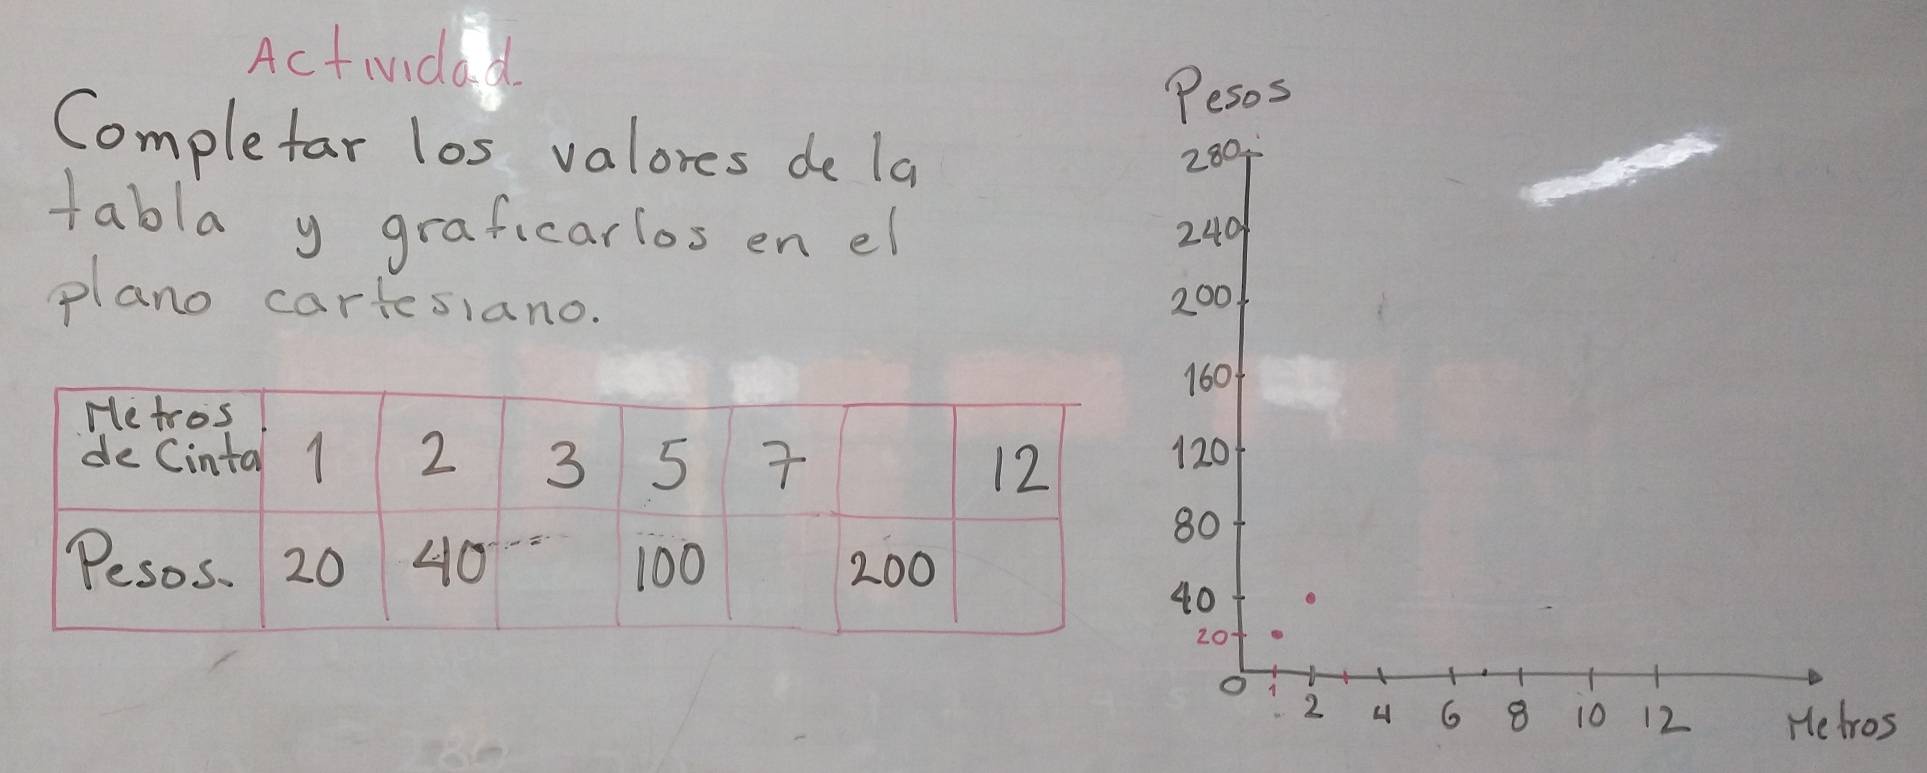 Actividad.
Completar los valores de la
tabla y graficarlos en el
plano cartesiano.
Metros
de Cinta 1 2 3 5 7 12
Pesos. 20 40 100 200
Pesos
280
240
200
160
120
80
40
20
0 1 2 4 6 8 10 12 Metros